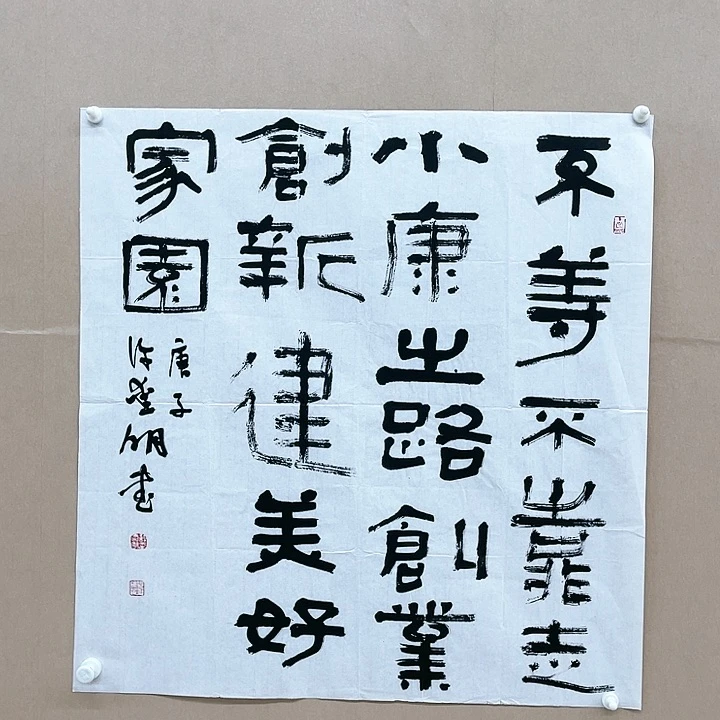 不等不靠走
小康之路創業
創新建美好
家園
庚子
许明书